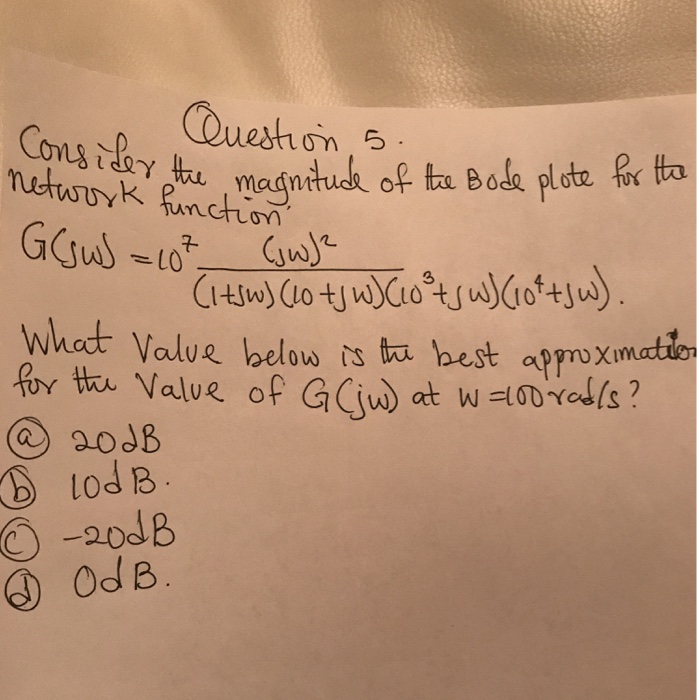 Question 5.
Consider the magnitude of the Bode plote for the
network function.
G(jw) = 10⁷ (jw)² / (1+jw)(10+jw)(10³+jw)(10⁴+jw).
What Value below is the best approximation
for the Value of G(jw) at w=100rad/s?
(a) 20dB
(b) 10dB.
(c) -20dB
(d) 0dB.